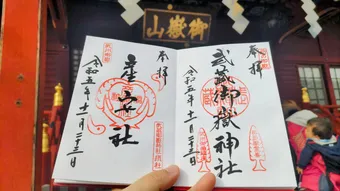 御嶽山
奉拝
武蔵御嶽神社
令和五年十一月二十三日
奉拝
産安社
令和五年十一月二十三日